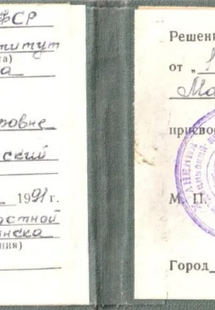 ФСР
ститут
та)
а
ровне
ский
1991 г.
стной
нска
ния)
Решени
от
Ма
присво
М. П.
Город